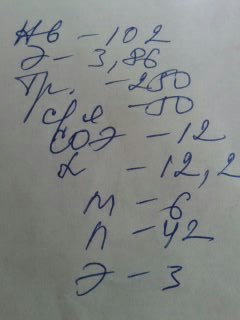 Нв - 102
Э - 3,86
Тр. - 250
с/я - 50
СОЭ - 12
L - 12,2
М - 6
Л - 42
Э - 3